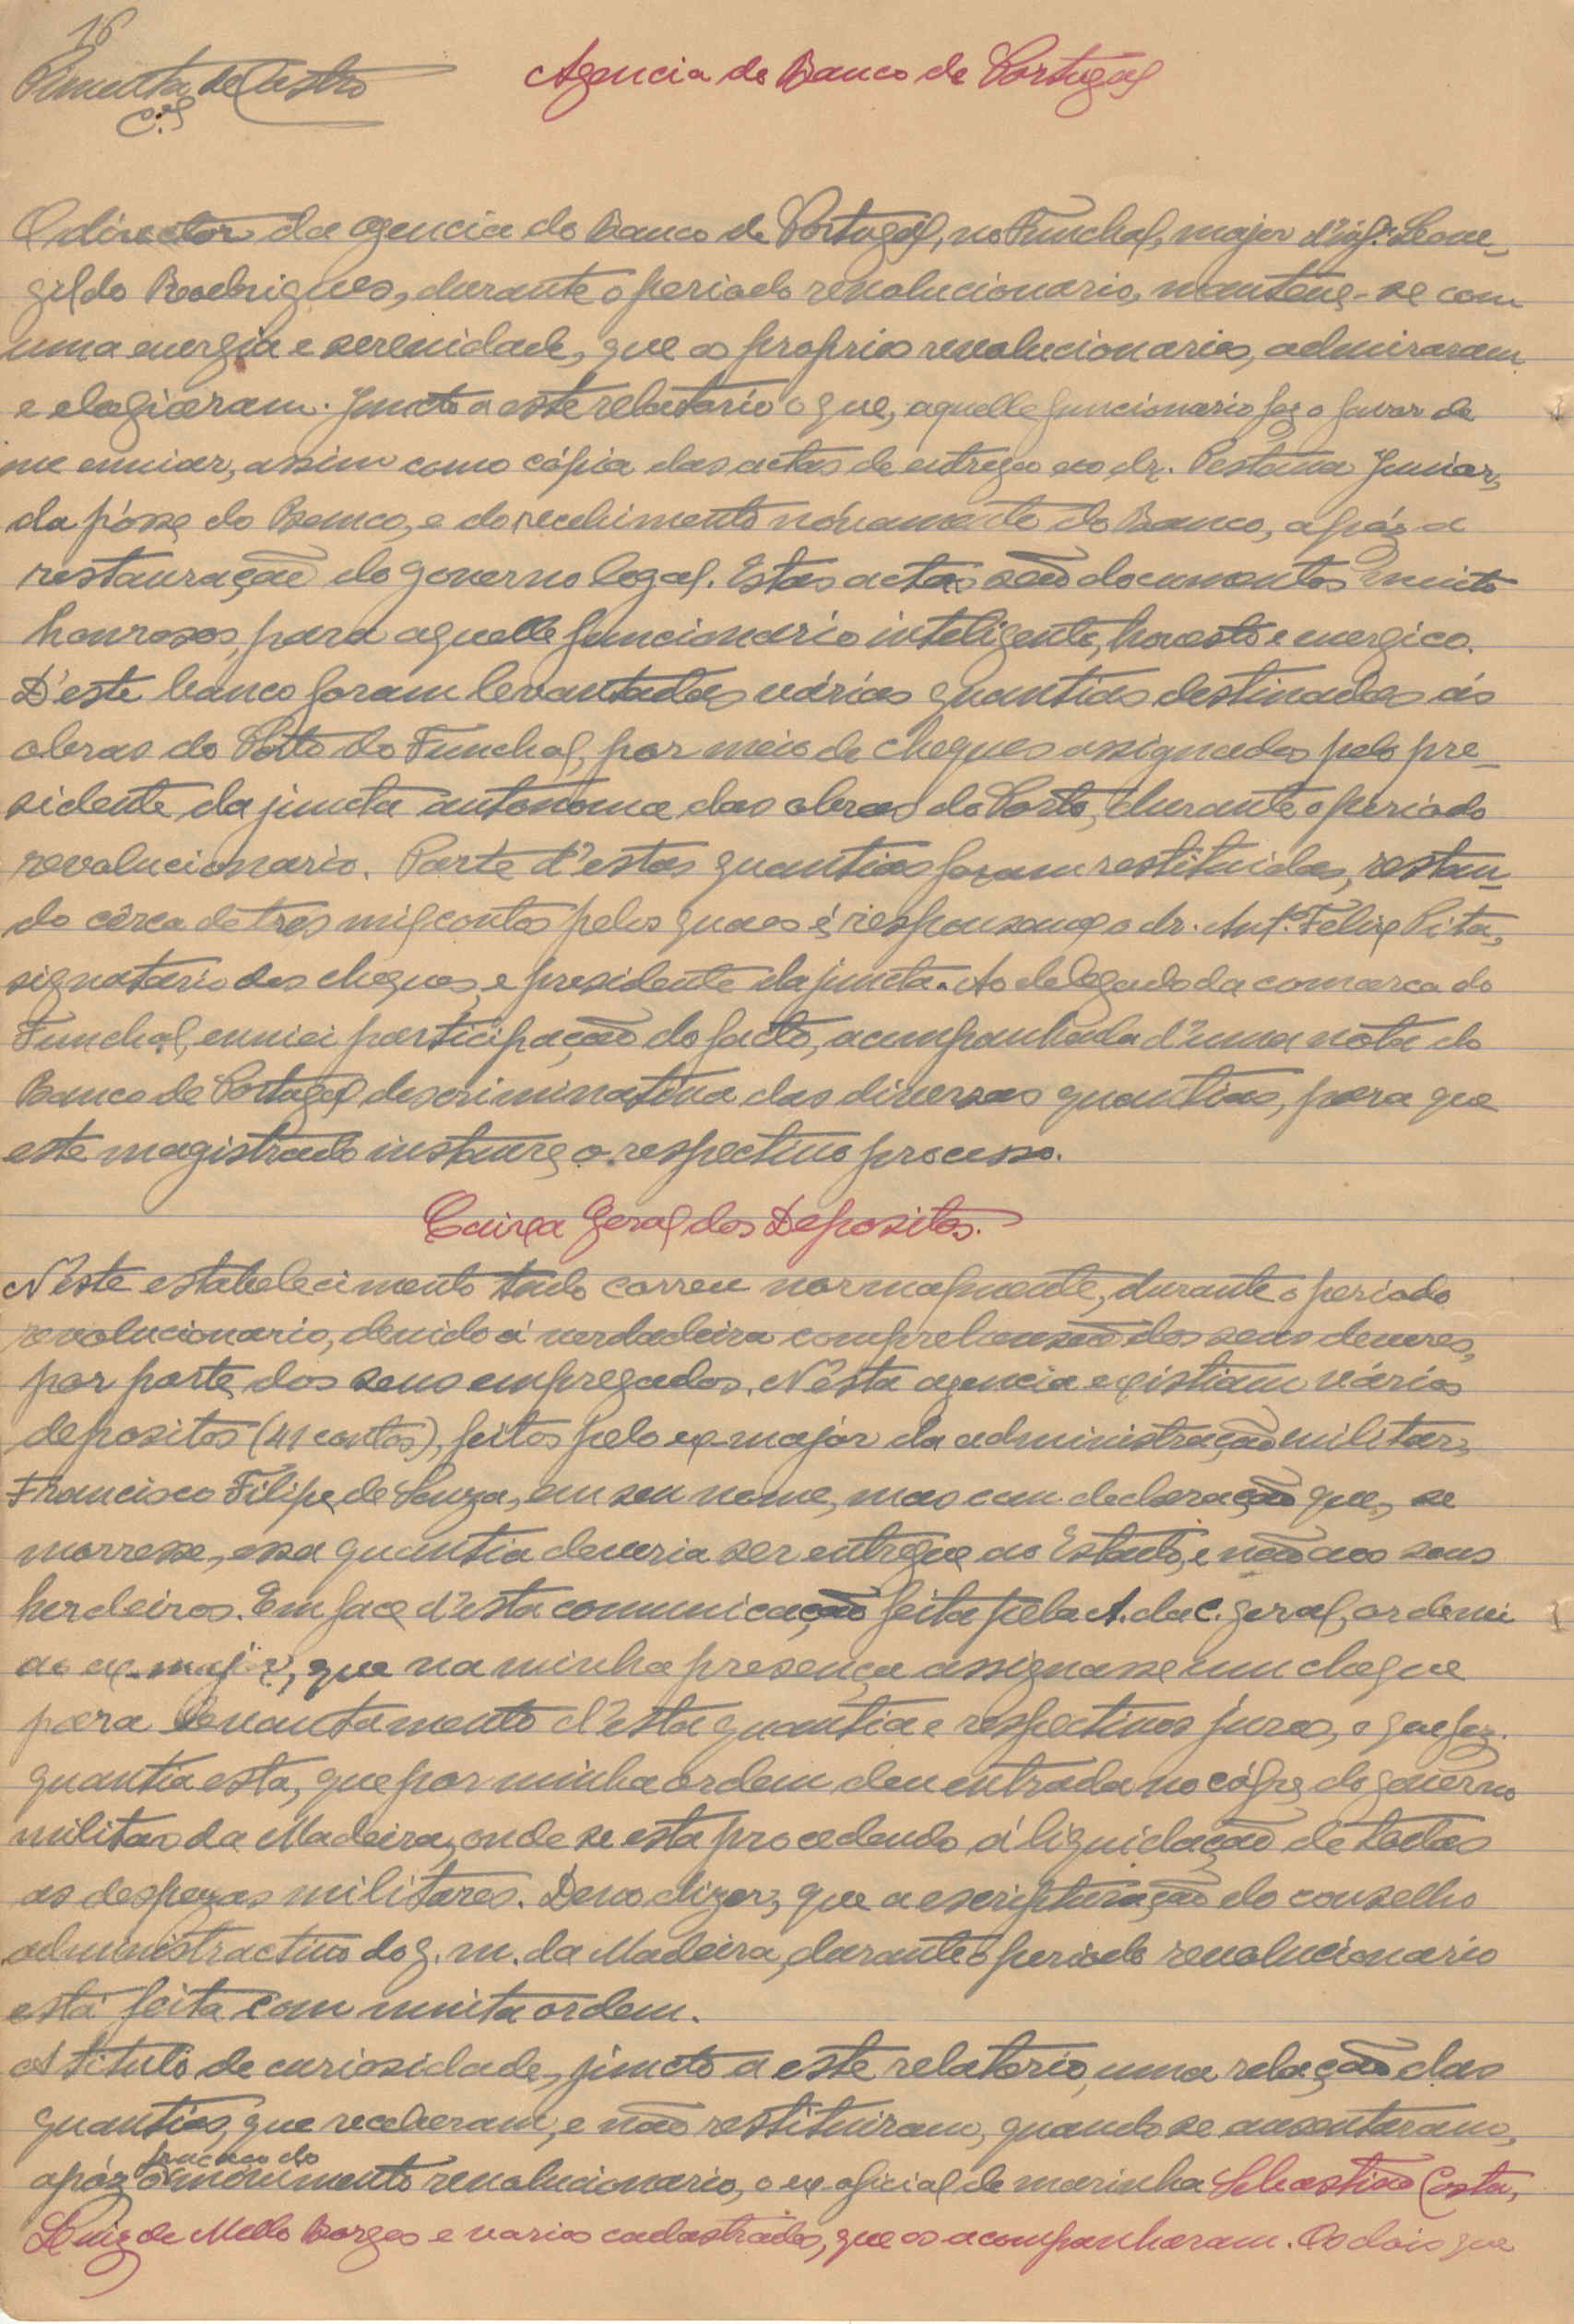 16
Pimenta de Castro
C.el
Agencia do Banco de Portugal
O director da agencia do Banco de Portugal, no Funchal, major d'inf.ª Leove-
gildo Rodrigues, durante o periodo revolucionario, manteve-se com
uma energia e serenidade, que os proprios revolucionarios, admiraram
e elogiaram. Juncto a este relatorio o que, aquelle funcionario fez o favor de
me enviar, assim como cópia das actas de entrega ao dr. Pestana Junior,
da pósse do Banco, e do recebimento nóvamente do Banco, apóz a
restauração do governo legal. Estas actas são documentos muito
honrosos, para aquelle funcionario inteligente, honesto e energico.
D'este banco foram levantadas várias quantias destinadas ás
obras do Porto do Funchal, por meio de cheques assignados pelo pre-
sidente da juncta autonoma das obras do Porto, durante o periodo
revolucionario. Parte d'estas quantias foram restituidas, restan-
do cêrca de tres mil contos pelos quaes é responsavel o dr. Ant.º Felix Pita,
signatario dos cheques, e presidente da juncta. Ao delegado da comarca do
Funchal, enviei participação do facto, acompanhada d'uma nóta do
Banco de Portugal descriminativa das diversas quantias, para que
este magistrado instaure o respectivo processo.
Caixa Geral dos Depositos.
N'éste estabelecimento tudo correu normalmente, durante o periodo
revolucionario, devido á verdadeira comprehensão dos seus deveres,
por parte dos seus empregados. N'ésta agencia existiam vários
depositos (41 contos), feitos pelo ex-major da administração militar,
Francisco Filipe de Souza, em seu nome, mas com declaração que, se
morresse, essa quantia deveria ser entregue ao Estado, e não aos seus
herdeiros. Em face d'esta comunicação feita pela A. da C. geral, ordenei
ao ex-major, que na minha presença assignasse um cheque
para levantamento d'esta quantia e respectivos juros, o que fez.
Quantia esta, que por minha ordem deu entrada no cófre do govêrno
militar da Madeira, onde se esta procedendo á liquidação de todas
as despezas militares. Devo dizer, que a escripturação do conselho
administractivo do g. m. da Madeira, durante o periodo revolucionario
está feita com muita ordem.
A titulo de curiosidade, juncto a este relatorio, uma relação das
quantias, que receberam, e não restituiram, quando se ausentaram,
fracaço do
apóz o movimento revolucionario, o ex-oficial de marinha Sebastião Costa,
Luiz de Mello Borges e varios cadastrados, que os acompanharam. Os dois que